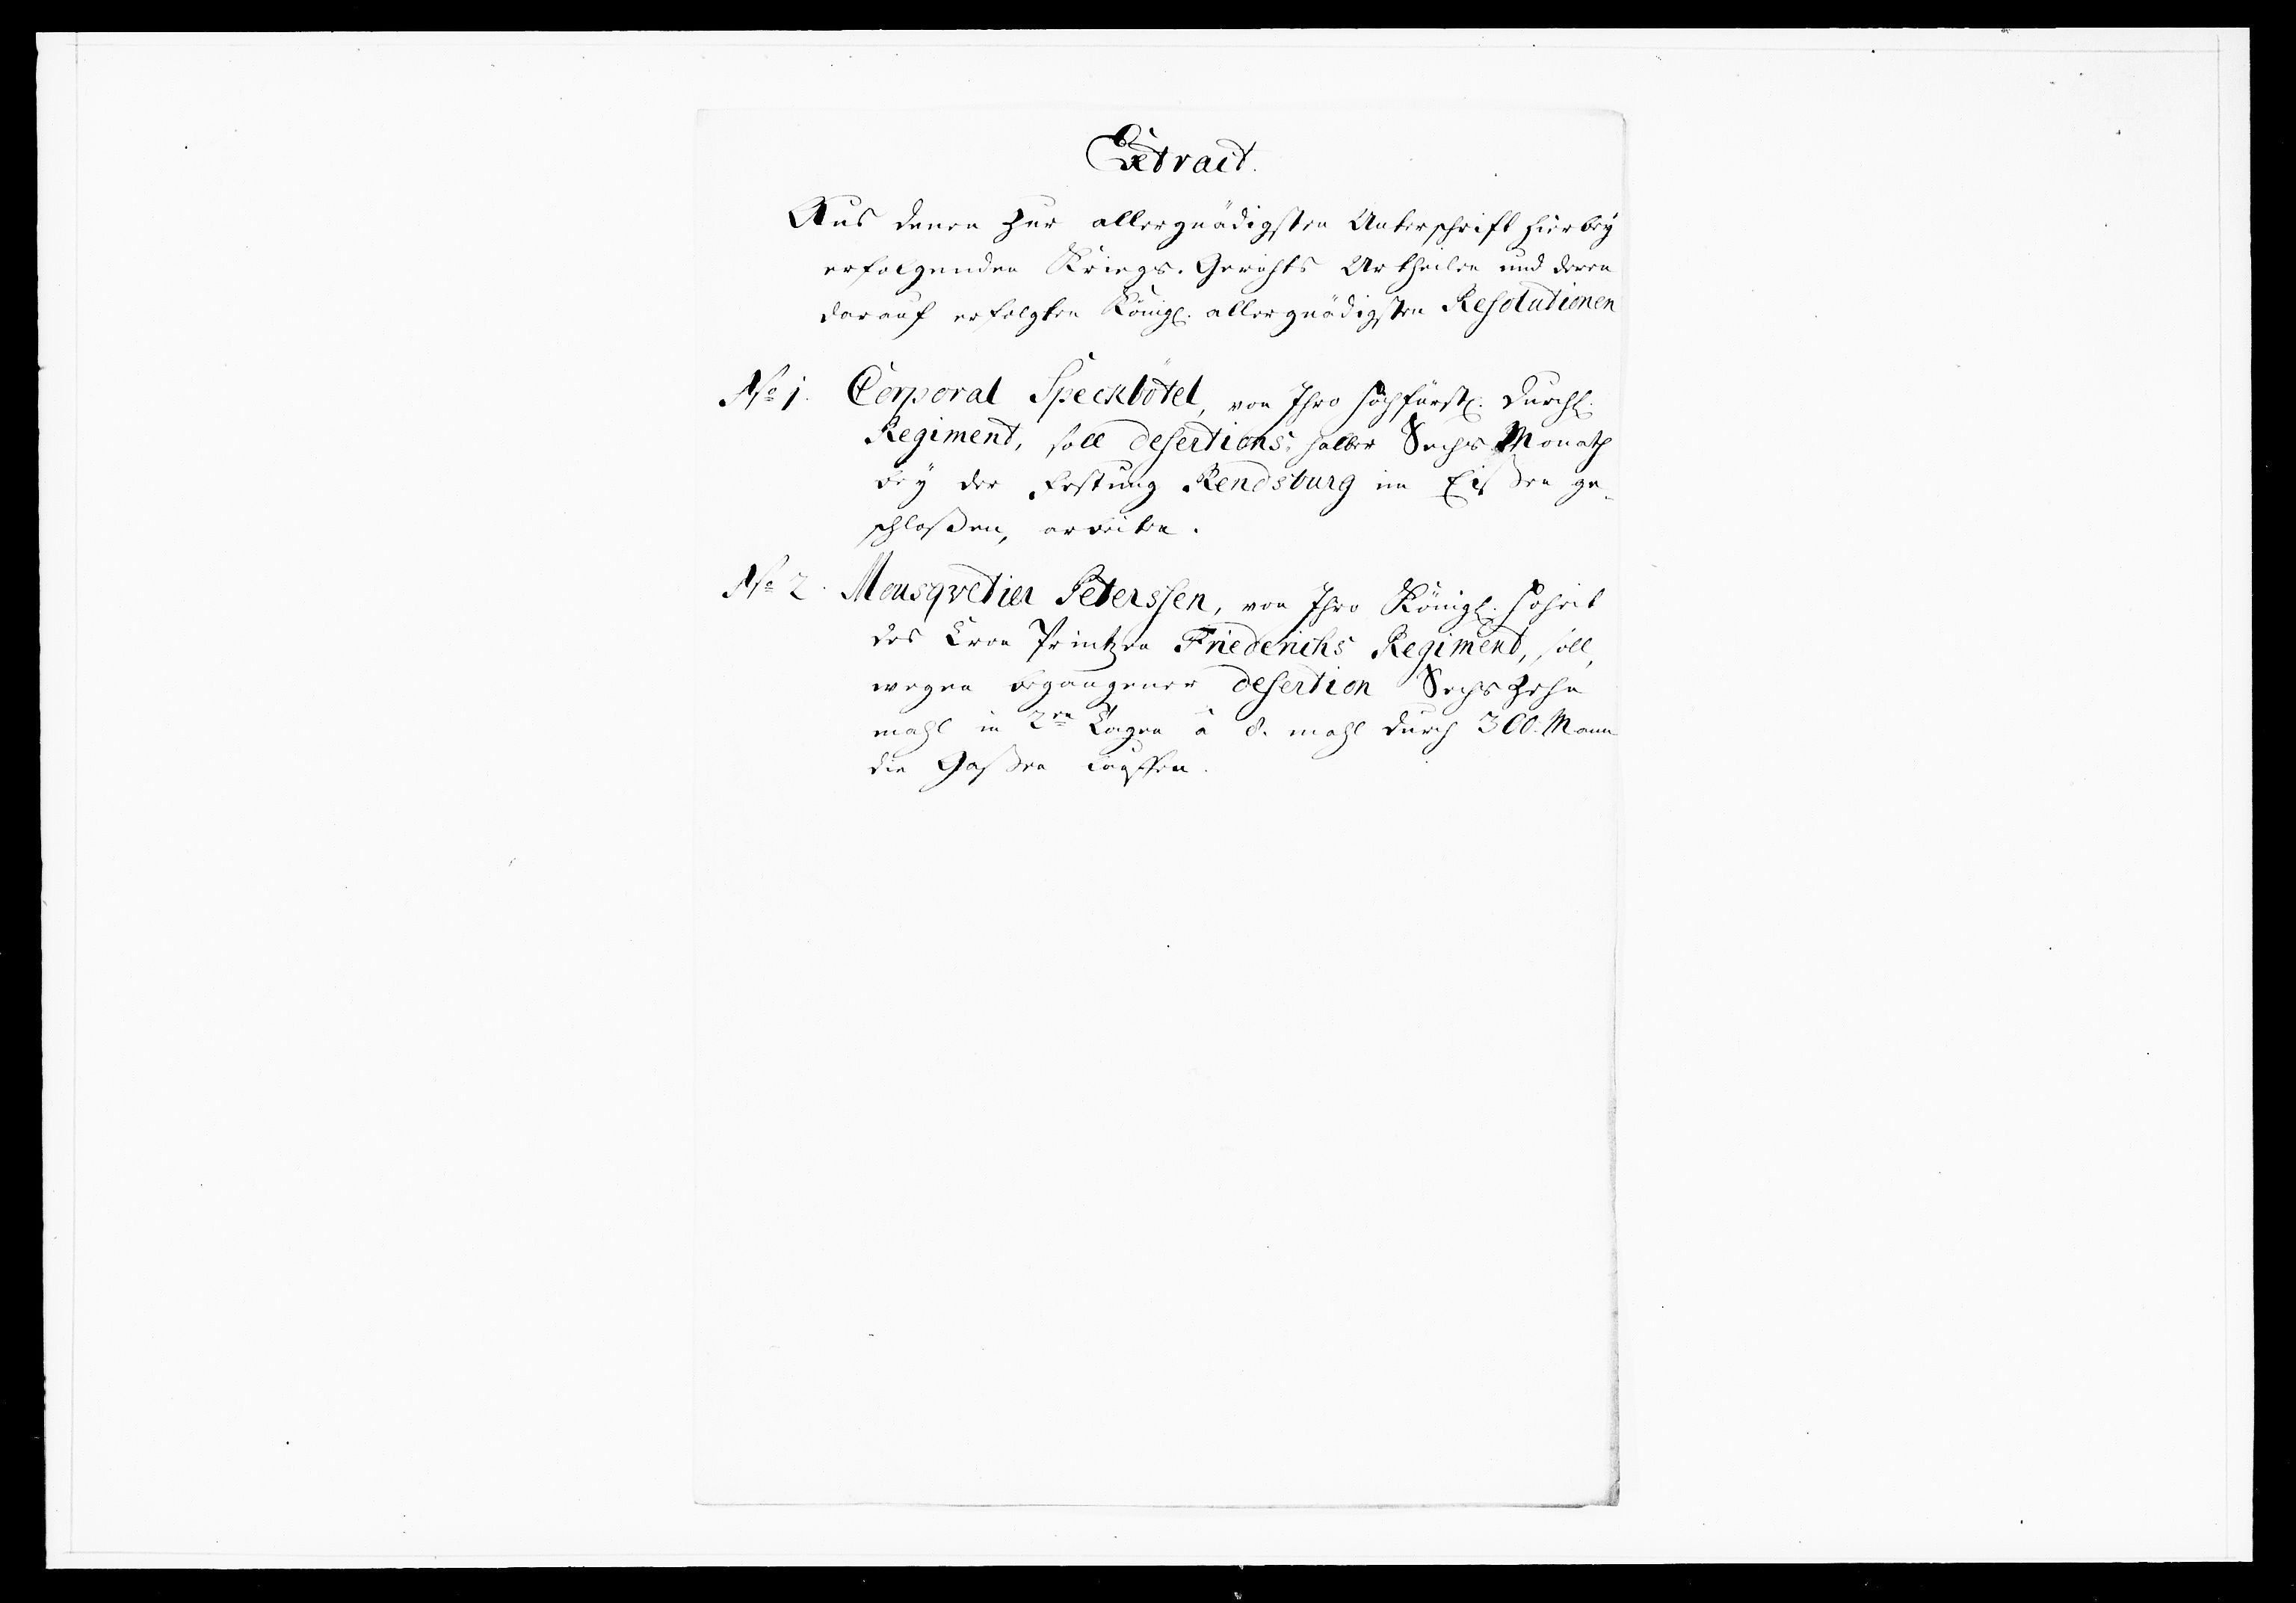 Extrait.
Aus denen zur allergnädigsten Unterschrifft hierbey
erfolgenden Kriegs-Gerichts Urtheilen und deren
darauf erfolgten Königl. allergnädigsten Resolutionen
No 1. Corporal Speckbötel, von Ihro Hochfürstl. Durchl.
Regiment, soll desertions halber Sechs Monath
bey der Festung Rendsburg im Eißen ge-
schloßen, arbeiten.
No 2. Mousqvetier Peterssen, von Ihro Königl. Hoheit
des Cron Printzen Friederichs Regiment, soll,
wegen begangener desertion Sechszehn
mahl in 2en Tagen â 8. mahl durch 300. Mann
die Gaßen lauffen.